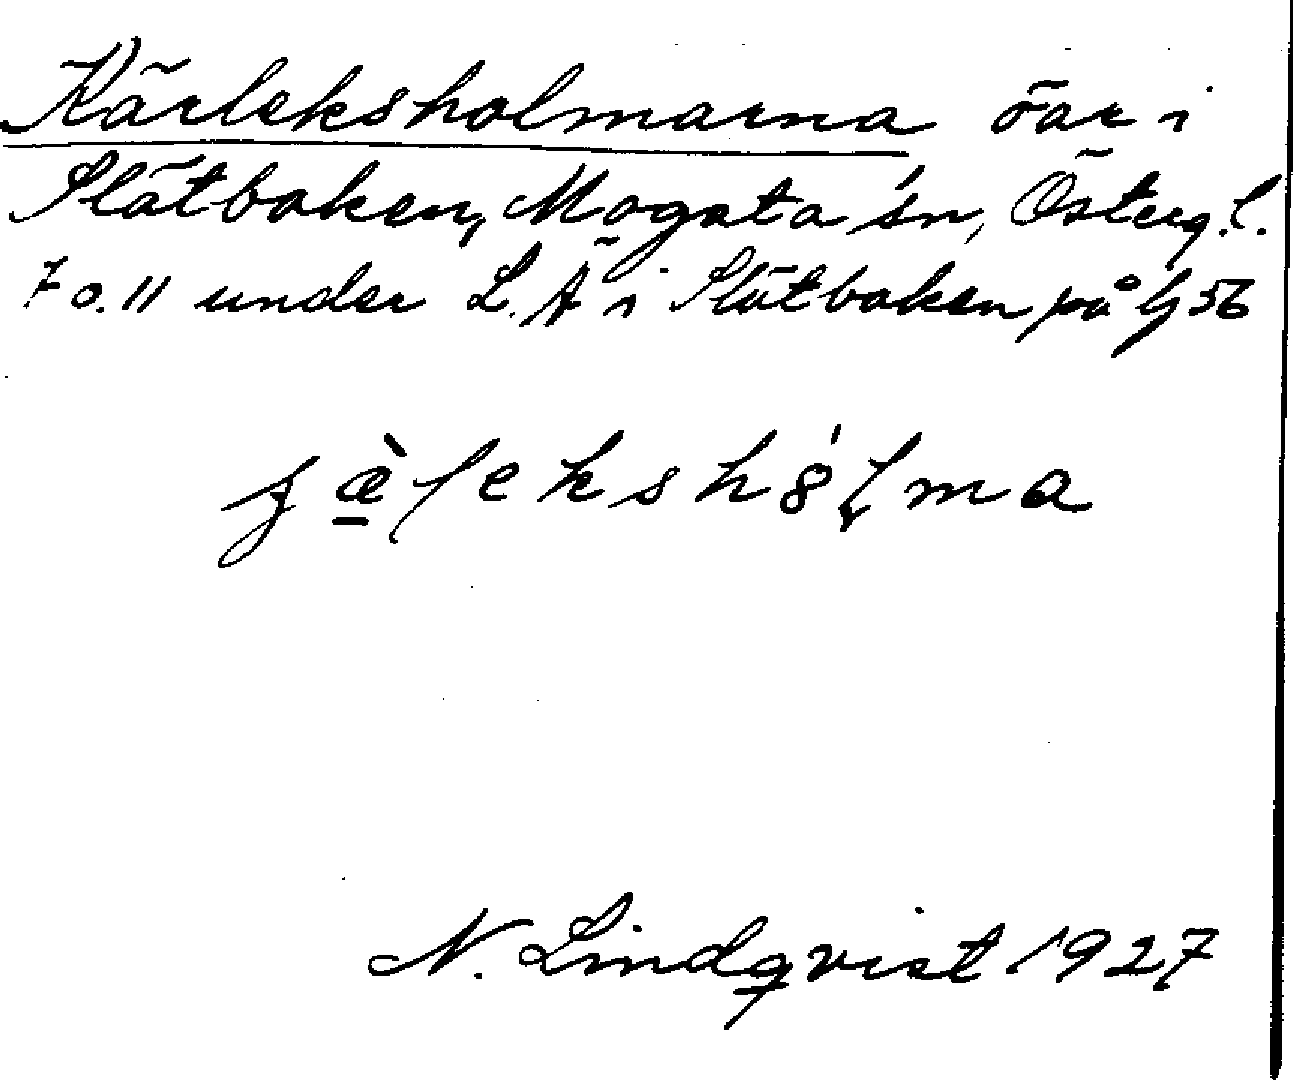 Kärleksholmarna öar i
Slätbaken, Mogata sn, Österg.l.
7 o. 11 under L. Ä i Slätbaken på bl 56
N. Lindqvist 1927